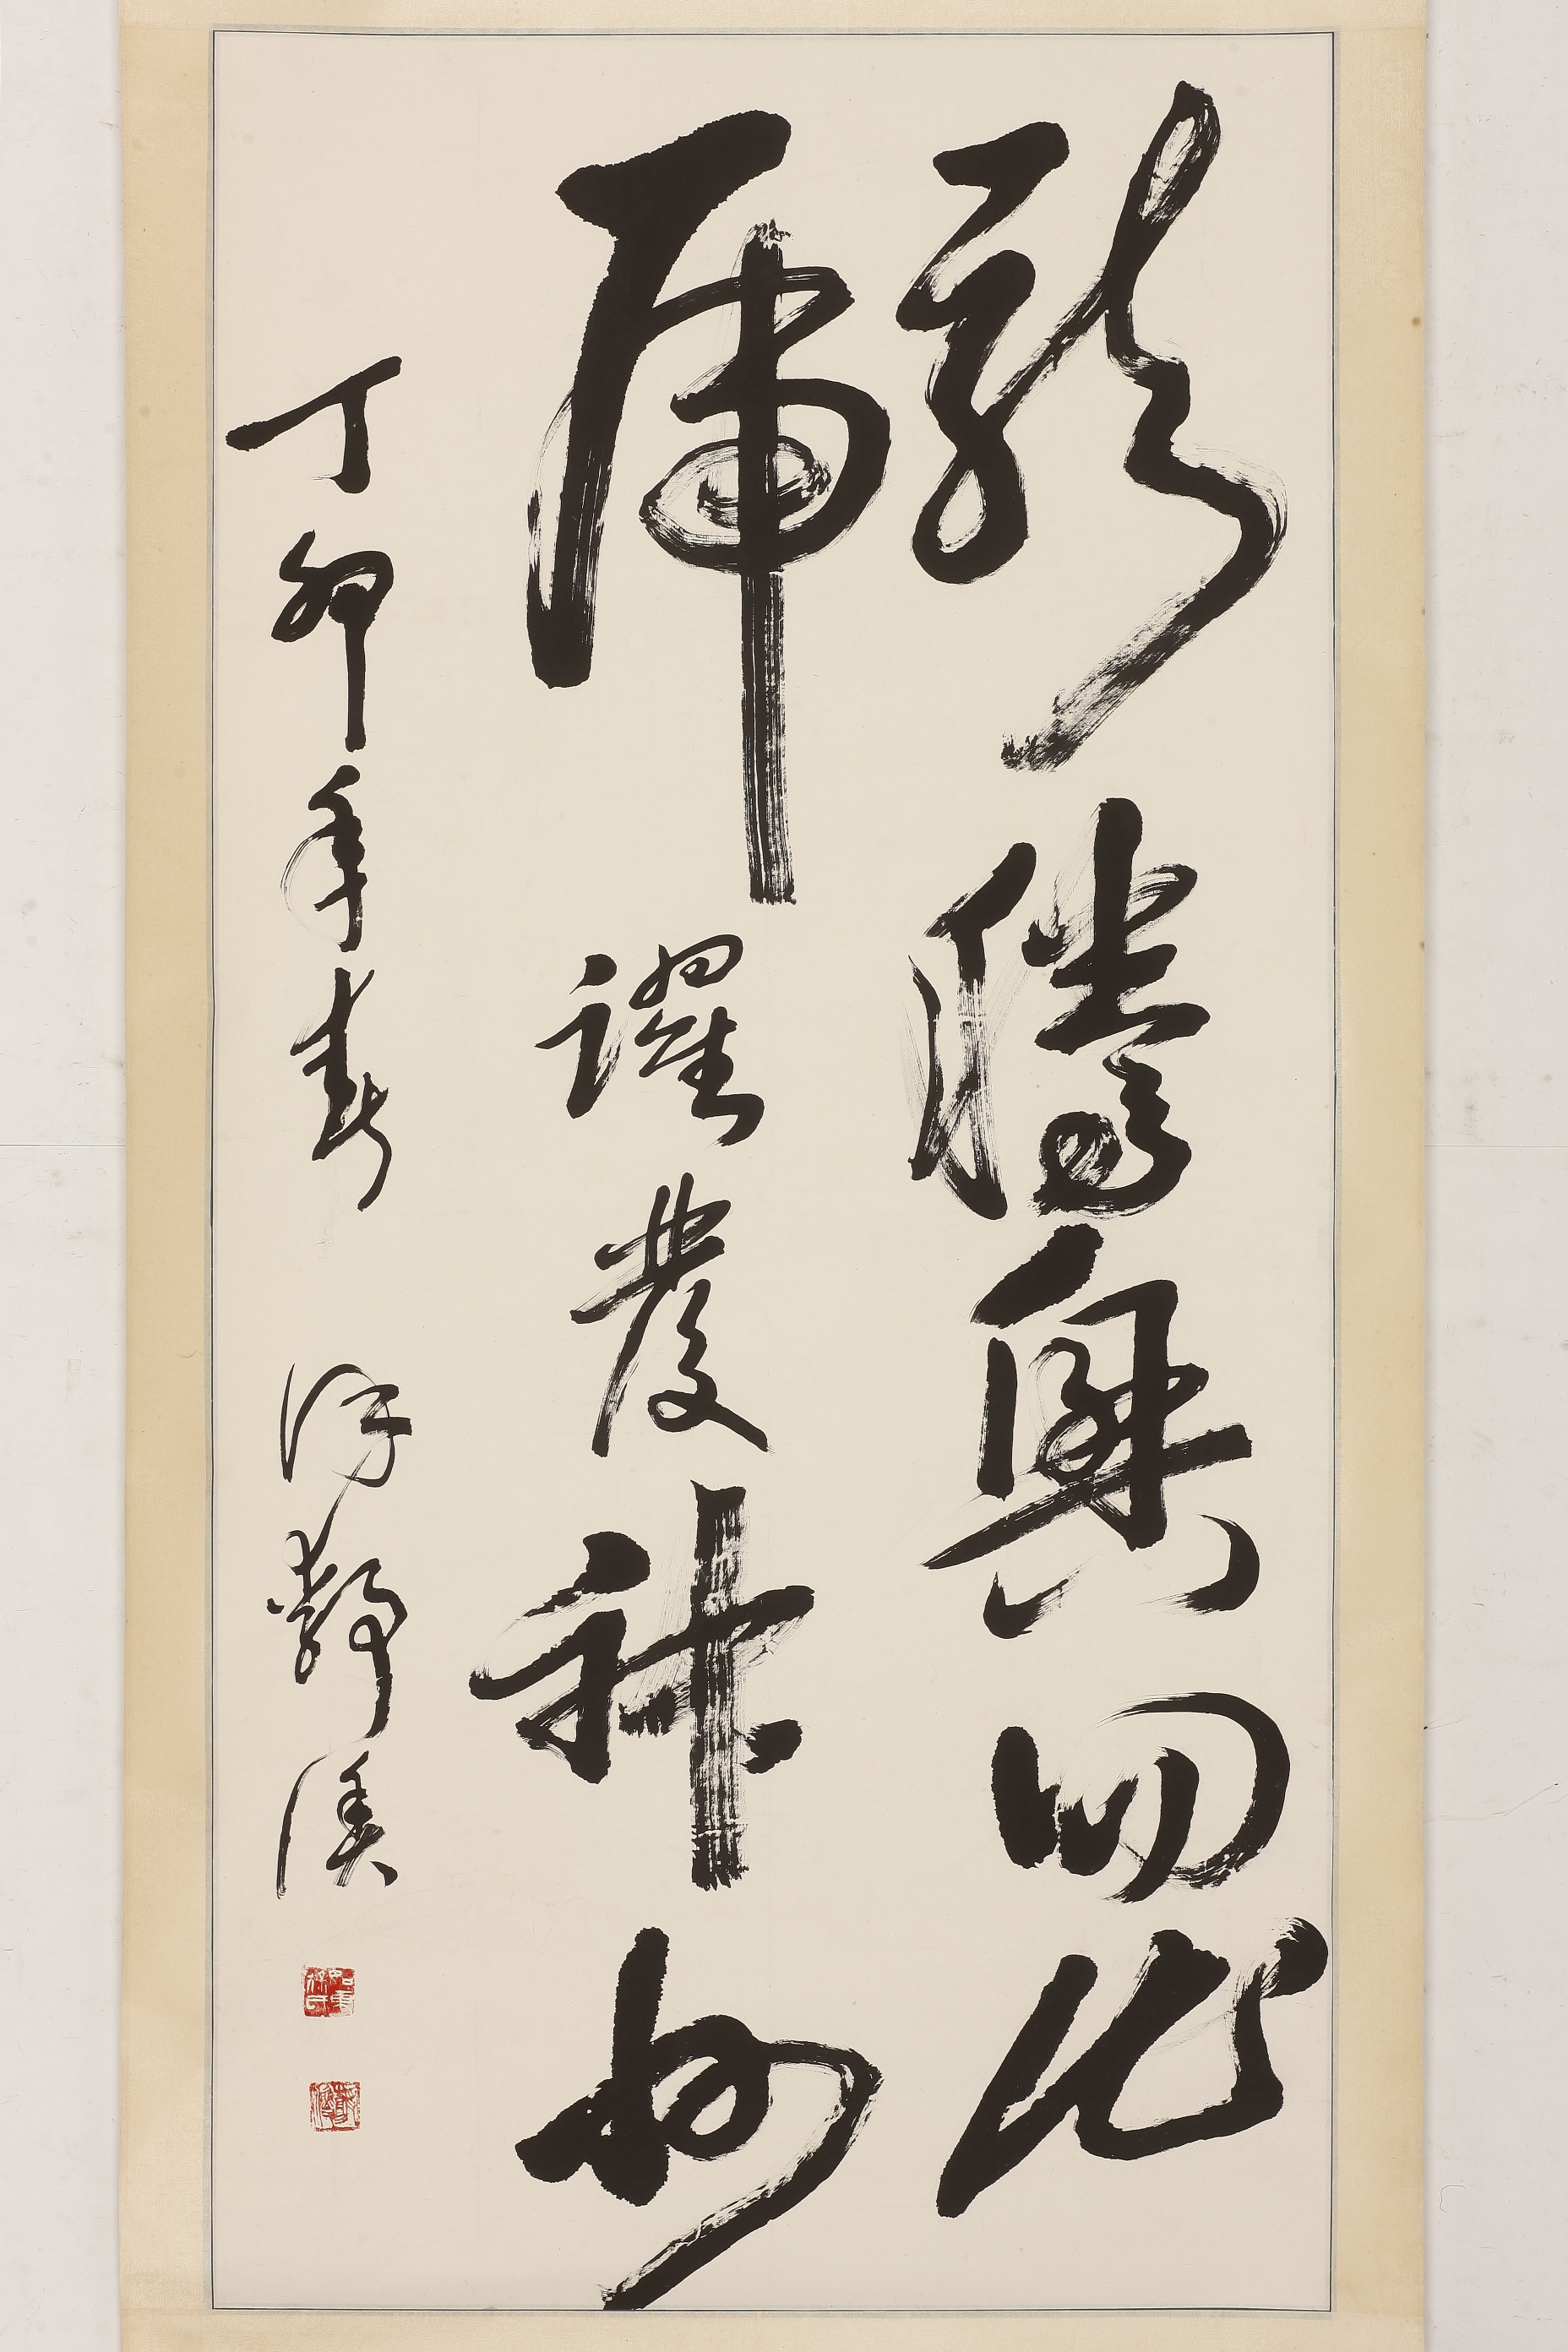 龍騰興四化
虎躍發神州
丁卯年春 徐静溪